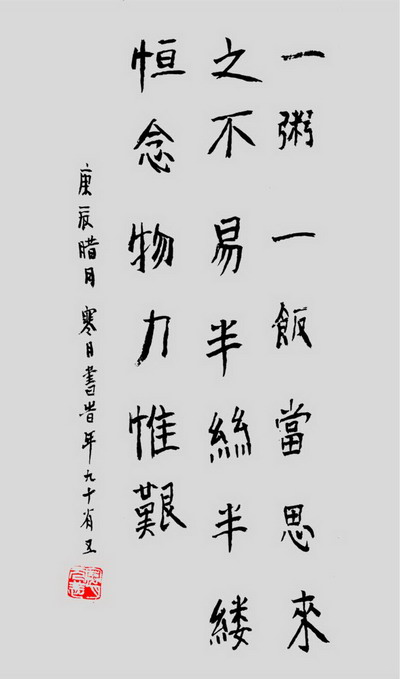 一粥一飯當思來
之不易半絲半縷
恒念物力惟艱
庚辰腊月寒日書旹年九十有五